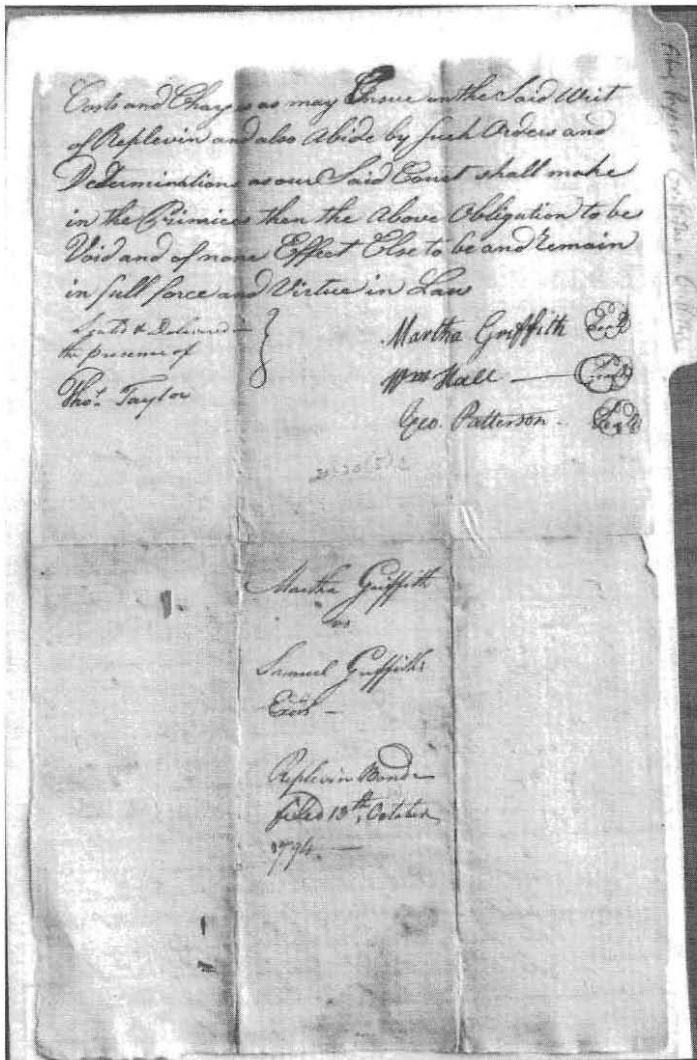 Costs and Charges as may Ensue on the Said Writ
of Replevin and also Abide by Such Orders and
Determinations as our Said Court shall make
in the Primices then the Above Obligation to be
Void and of none Effect Else to be and remain
in full force and Virtue in Law
Seal'd & Delivered in
the presence of
Thos. Taylor
Martha Griffith Seal
Wm Hall — Seal
Geo. Patterson. Seal
Martha Griffith
vs
Samuel Griffiths
Exors —
Replevin Bond
filed 13th, October
1794. —